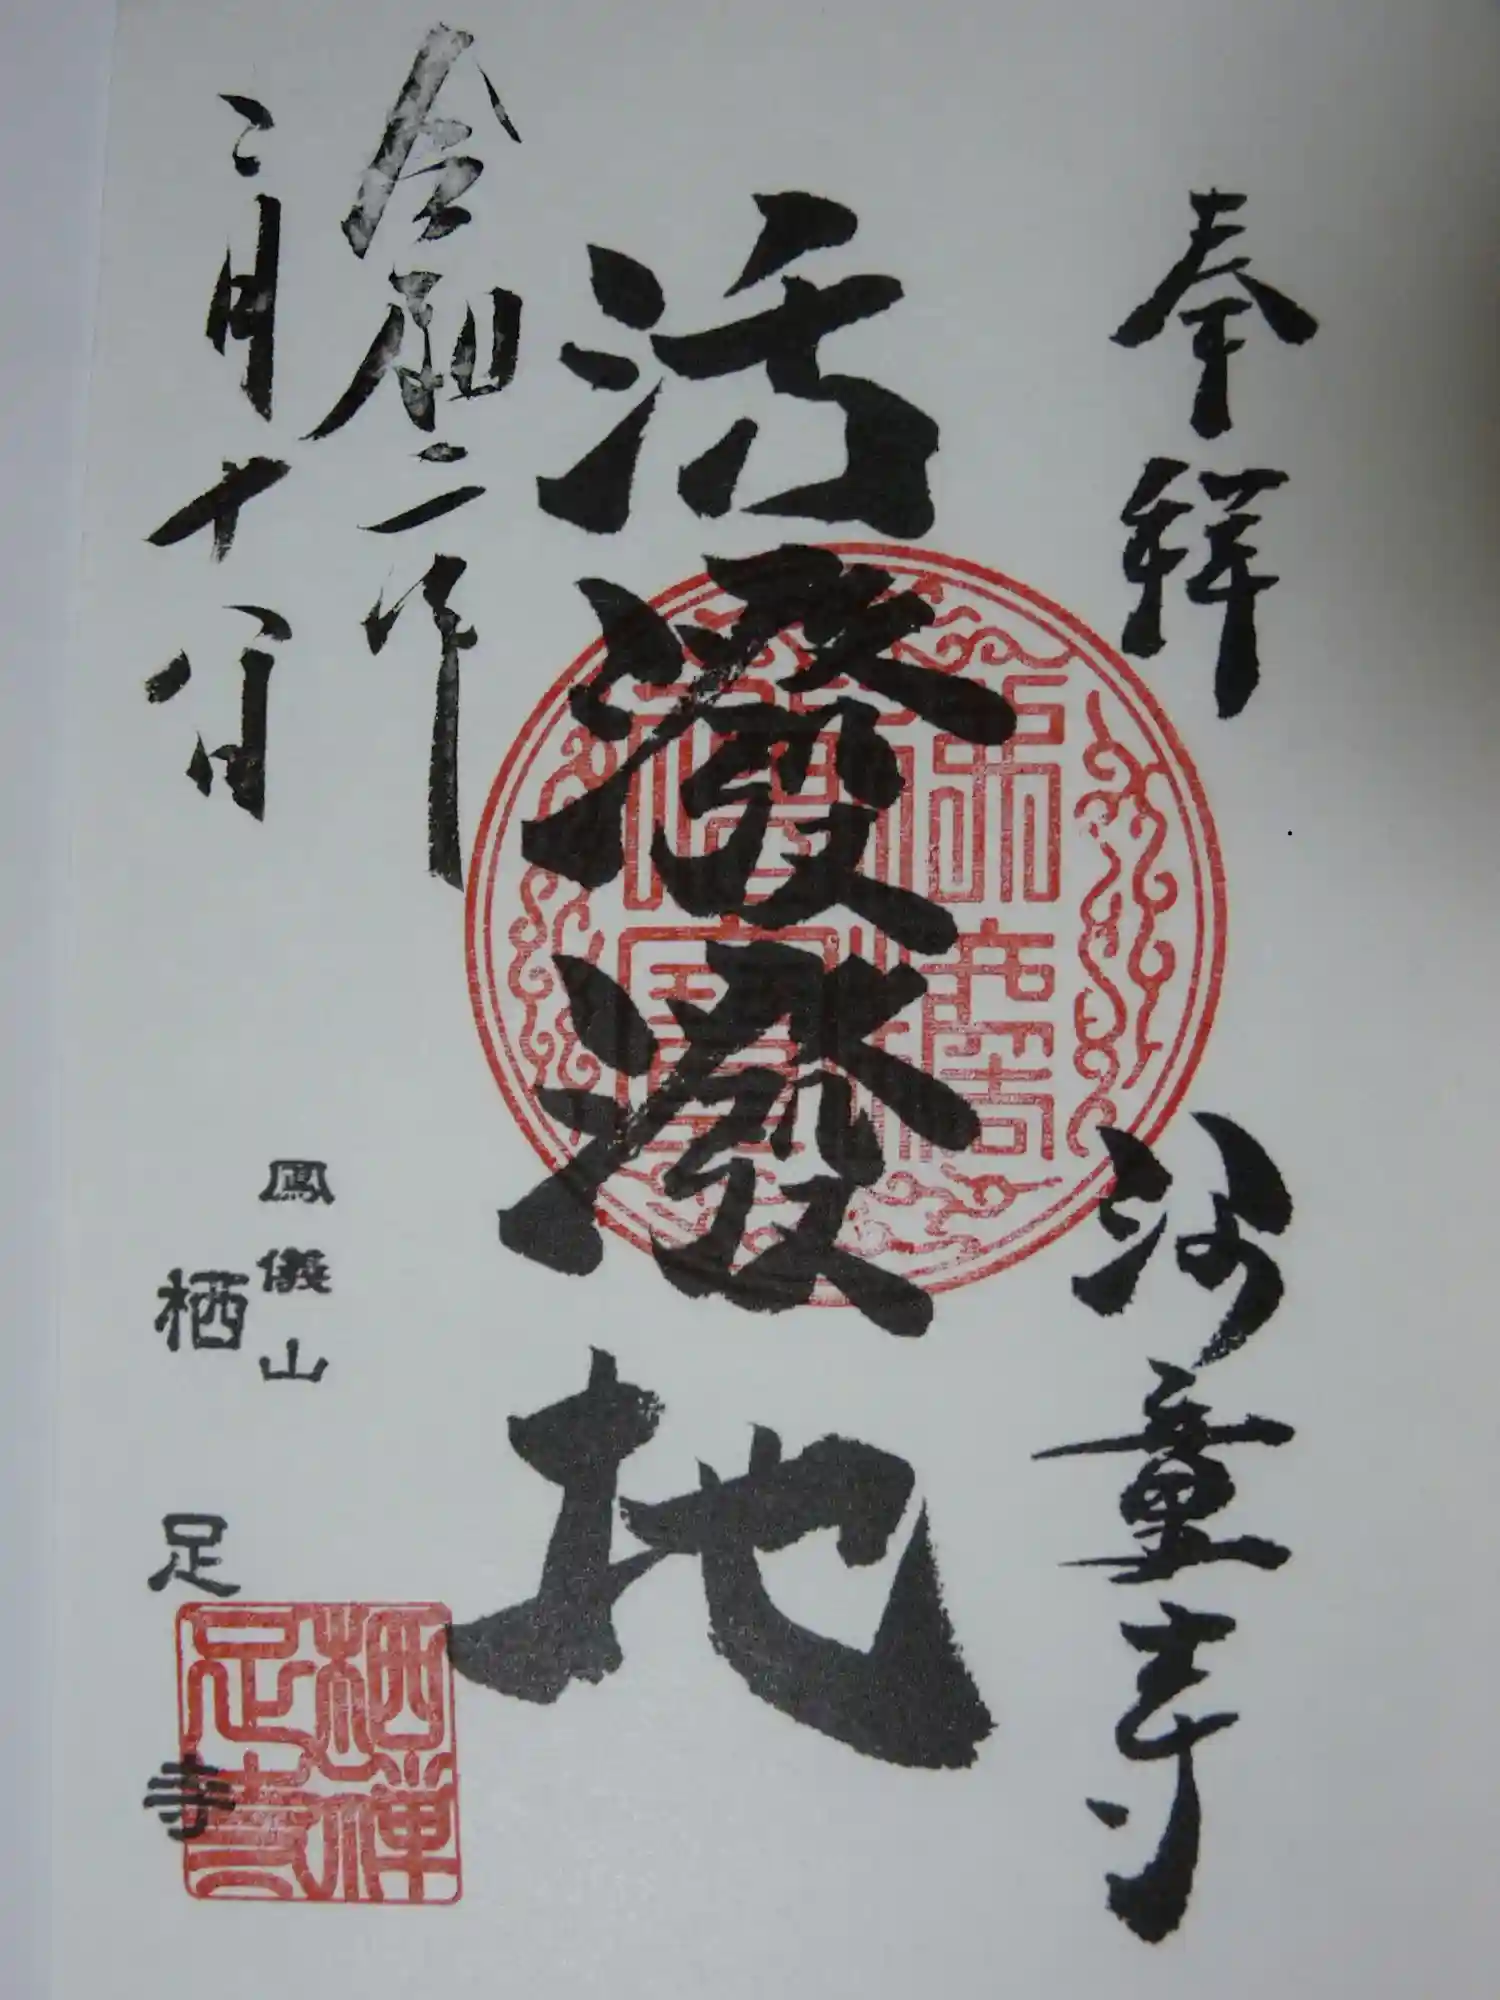 奉拝
沙童寺
活溌溌地
令和二年
二月十八日
鳳儀山
栖足寺
栖禅
足寺